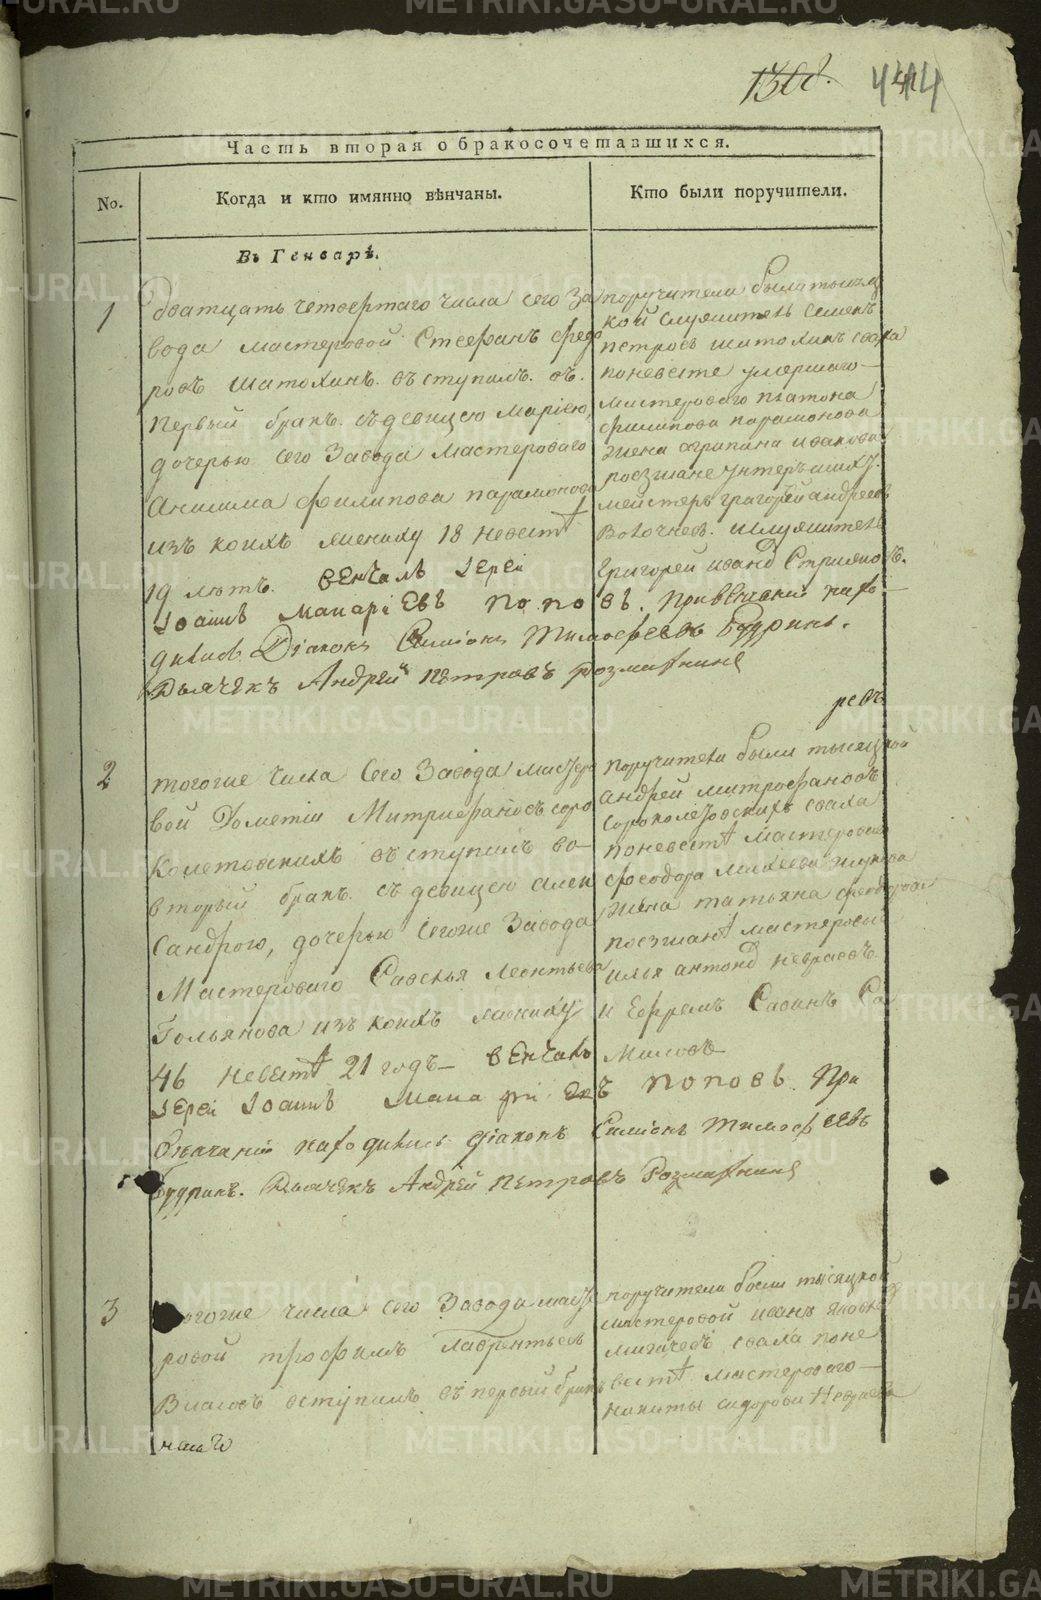 1308.
444
Часть вторая о бракосочетавшихся.
No.
Когда и кто имянно вѣнчаны.
Кто были поручители.
Въ Генварѣ.
1
дватцать четвертаго числа сего За
вода мастеровой Стефанъ Федо
ровъ Шатохинъ вступилъ въ
первый бракъ съ девицею Мариею,
дочерью сего Завода мастероваго
Филипова парамонова
изъ коихъ жениху 18 невестѣ
19 лѣтъ. венчалъ Iерей
Iоаннъ Макарiевъ поповъ. При венчанiи нахо
дились Дiаконъ Симионъ Тимофеевъ Бодринъ.
Дьячекъ Андрей Петровъ
поручители были тысяц
кой служитель Семенъ
петровъ шатохинъ сваха
поневесте умершаго
мастероваго платона
филипова парамонова
жена агрипина иванова
поезжане унтеръ шихт
мейстеръ григорей андреевъ
служитель
григорей иванов
ревъ
2
тогоже числа сего Завода мастеро
вой Дометiи Митрофановъ соро
вступилъ во
вторый бракъ съ девицею Алек
сандрою, дочерью сегоже Завода
Мастероваго Савелья Леонтьева
Гольянова изъ коихъ жениху
46 невестѣ 21 годъ венчалъ
Iерей Iоаннъ Мака рiевъ поповъ При
венчанiи находились дiаконъ Симионъ Тимофеевъ
Бодринъ. Дьячекъ Андрей Петровъ
поручители были тысяцкой
андрей митрофановъ
сваха
поневестѣ мастероваго
феодора
жена татьяна федорова
поезжанѣ мастеровые
илья антонов
и Ефремъ Савинъ Са
миловъ
3
тогоже числа сего Завода масте
ровой трофимъ Лаврентьевъ
Власовъ вступилъ въ первый бракъ
поручители были тысяцкой
мастеровой иванъ
сваха поне
вестѣ мастероваго
никиты сидорова